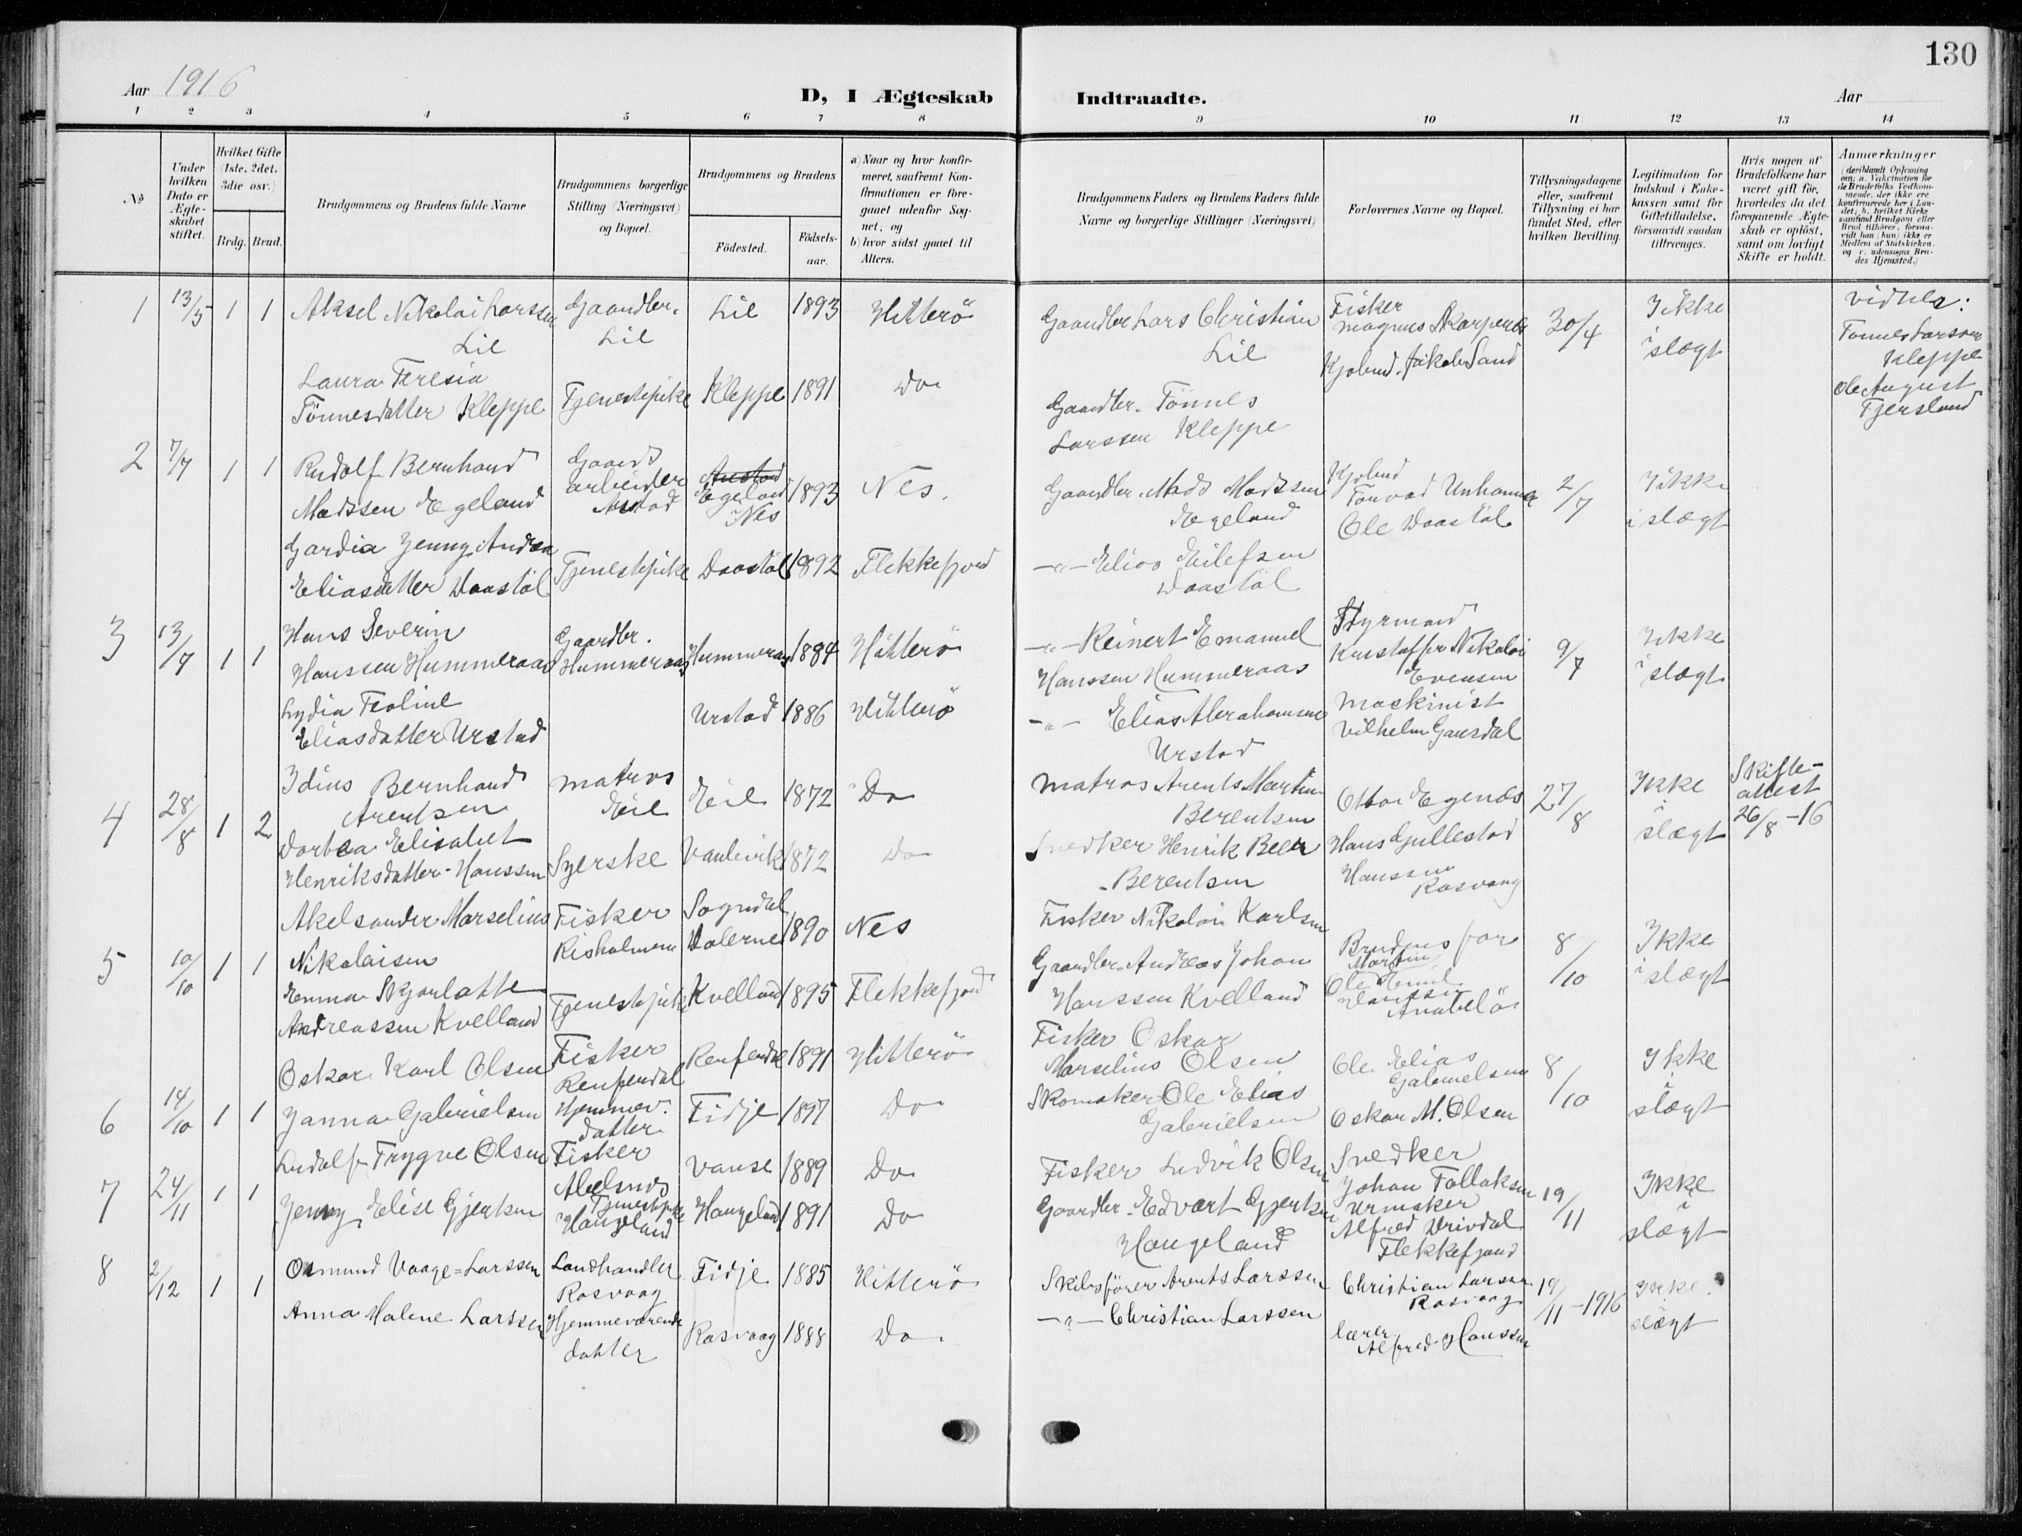 130
Aar 1916
D, I Ægteskab Indtraadte.
Aar
1 2 3 4 5 6 7 8 9 10 11 12 13 14
No
Under hvilken Dato er Ægteskabet stiftet.
Hvilket Gifte (1ste, 2det, 3die osv.)
Brdg. Brud.
Brudgommens og Brudens fulde Navne
Brudgommens borgerlige Stilling (Næringsvei) og Bopæl.
Brudgommens og Brudens
Fødested.
Fødselsaar.
a) Naar og hvor konfirmeret, saafremt Konfirmationen er foregaaet udenfor Sognet, og
b) hvor sidst gaaet til Alters.
Brudgommens Faders og Brudens Faders fulde Navne og borgerlige Stillinger (Næringsvei)
Forlovernes Navne og Bopæl.
Tillysningsdagene eller, saafremt Tillysning ei har fundet Sted, efter hvilken Bevilling.
Legitimation for Indskud i Enkekassen samt for Giftetilladelse, forsaavidt saadan tiltrænges.
Hvis nogen af Brudefolkene har været gift før, hvorledes da det foregaaende Ægteskab er opløst, samt om lovligt Skifte er holdt.
Anmerkninger (deriblandt Oplysning om: a. Vakcination for de Brudefolks Vedkommende, der ikke ere konfirmerede her i Landet; b. hvilket Kirkesamfund Brudgom eller Brud tilhører, forsaavidt han (hun) ikke er Medlem af Statskirken. og c. udensogns Brudes Hjemsted.)
1 13/5 1 1 Aksel Nikolai Larssen Gaardbr. Lil 1893 Hitterö Gaardbr Lars Christian Fisker 30/4 Ikke Vidner:
Lil Lil Lil Magnus i slægt Tönnes Larssen
Kjøbmd. Jakob Sand Kleppe
Laura Teresia Tjenestepike Kleppe 1891 Do Gaardbr. Tönnes Ole August
Tönnesdatter Kleppe Larssen Kleppe Fjersland
2 7/7 1 1 Rudolf Bernhard Gaards Kjøbmd
Madssen Egeland arbeider Egeland 1893 Nes. Gaardbr. Mads Madssen 2/7 Ikke
i Nes Egeland Ole Daastöl i slægt
Gardia Jenny Andrea
Eliasdatter Daastöl Tjenestepike Daastöl 1892 Flekkefjord -"- Elias Eilefsen
Daastöl
3 13/7 1 1 Hans Severin Gaardbr. Styrmand
Hanssen Hummeraas Hummeraas Hummeraas 1884 Hitterö -"- Reinert Emanuel Kristoffer Nikolai 9/7 Ikke
Hanssen Hummeraas Evensen i slægt
Lydia Teoline Urstad 1886 Hitterö -"- Elias Abrahamsen Maskinist
Eliasdatter Urstad Urstad Vilhelm Gausdal
4 28/8 1 2 Idius Bernhard Matros Eil 1872 Do Matros Arents Martin Ottar Egenæs 27/8 Ikke Skifte-
Arentsen Eil Berentsen i slægt attest
Dortea Elisabet Syerske 1872 Do Snedker Henrik Beer Hans Gjullestad 26/8-16
Henriksdatter Hanssen Berentsen Hanssen
Rasvaag
5 10/10 1 1 Akelsander Marselius Fisker Sogndal 1890 Nes Fisker Nikolai Karlsen Brudens far 8/10 Ikke
Nikolaisen Risholmen Dalerne Martin i slægt
Emma Skjarlotte Tjenestepike Kvelland 1895 Flekkefjord Gaardbr. Andreas Johan Ole Emil
Andreassen Kvelland Hanssen Kvelland Hanssen
Anabelö
6 14/10 1 1 Oskar Karl Olsen Fisker 1891 Hitterö Fisker Oskar Ole Elias 8/10 Ikke
Marselius Olsen Gabrielsen i slægt
Janna Gabrielsen Hjemmev. Fidje 1897 Do Skomaker Ole Elias Oskar M. Olsen
datter Gabrielsen
7 24/11 1 1 Ludolf Trygve Olsen Fisker Vanse 1889 Do Fisker Ludvik Olsen Snedker 19/11 Ikke
Abelsnes Johan Tollaksen i slægt
Jenny Elise Gjertsen Tjenestpike Haugeland 1891 Do Gaardbr. Edvart Gjertsen Urmaker
Haugeland Haugeland Alfred Drivdal
Flekkefjord
8 2/12 1 1 Osmund Vaage-Larssen Landhandler Fidje 1885 Hitterö Skibsfører Arents Larssen Christian Larssen 19/11-1916 Ikke
Rasvaag Rasvaag i slægt
Anna Malene Larssen Hjemmeværende Rasvaag 1888 Do. -"- Christian Larssen Lærer
datter Alfred Hanssen